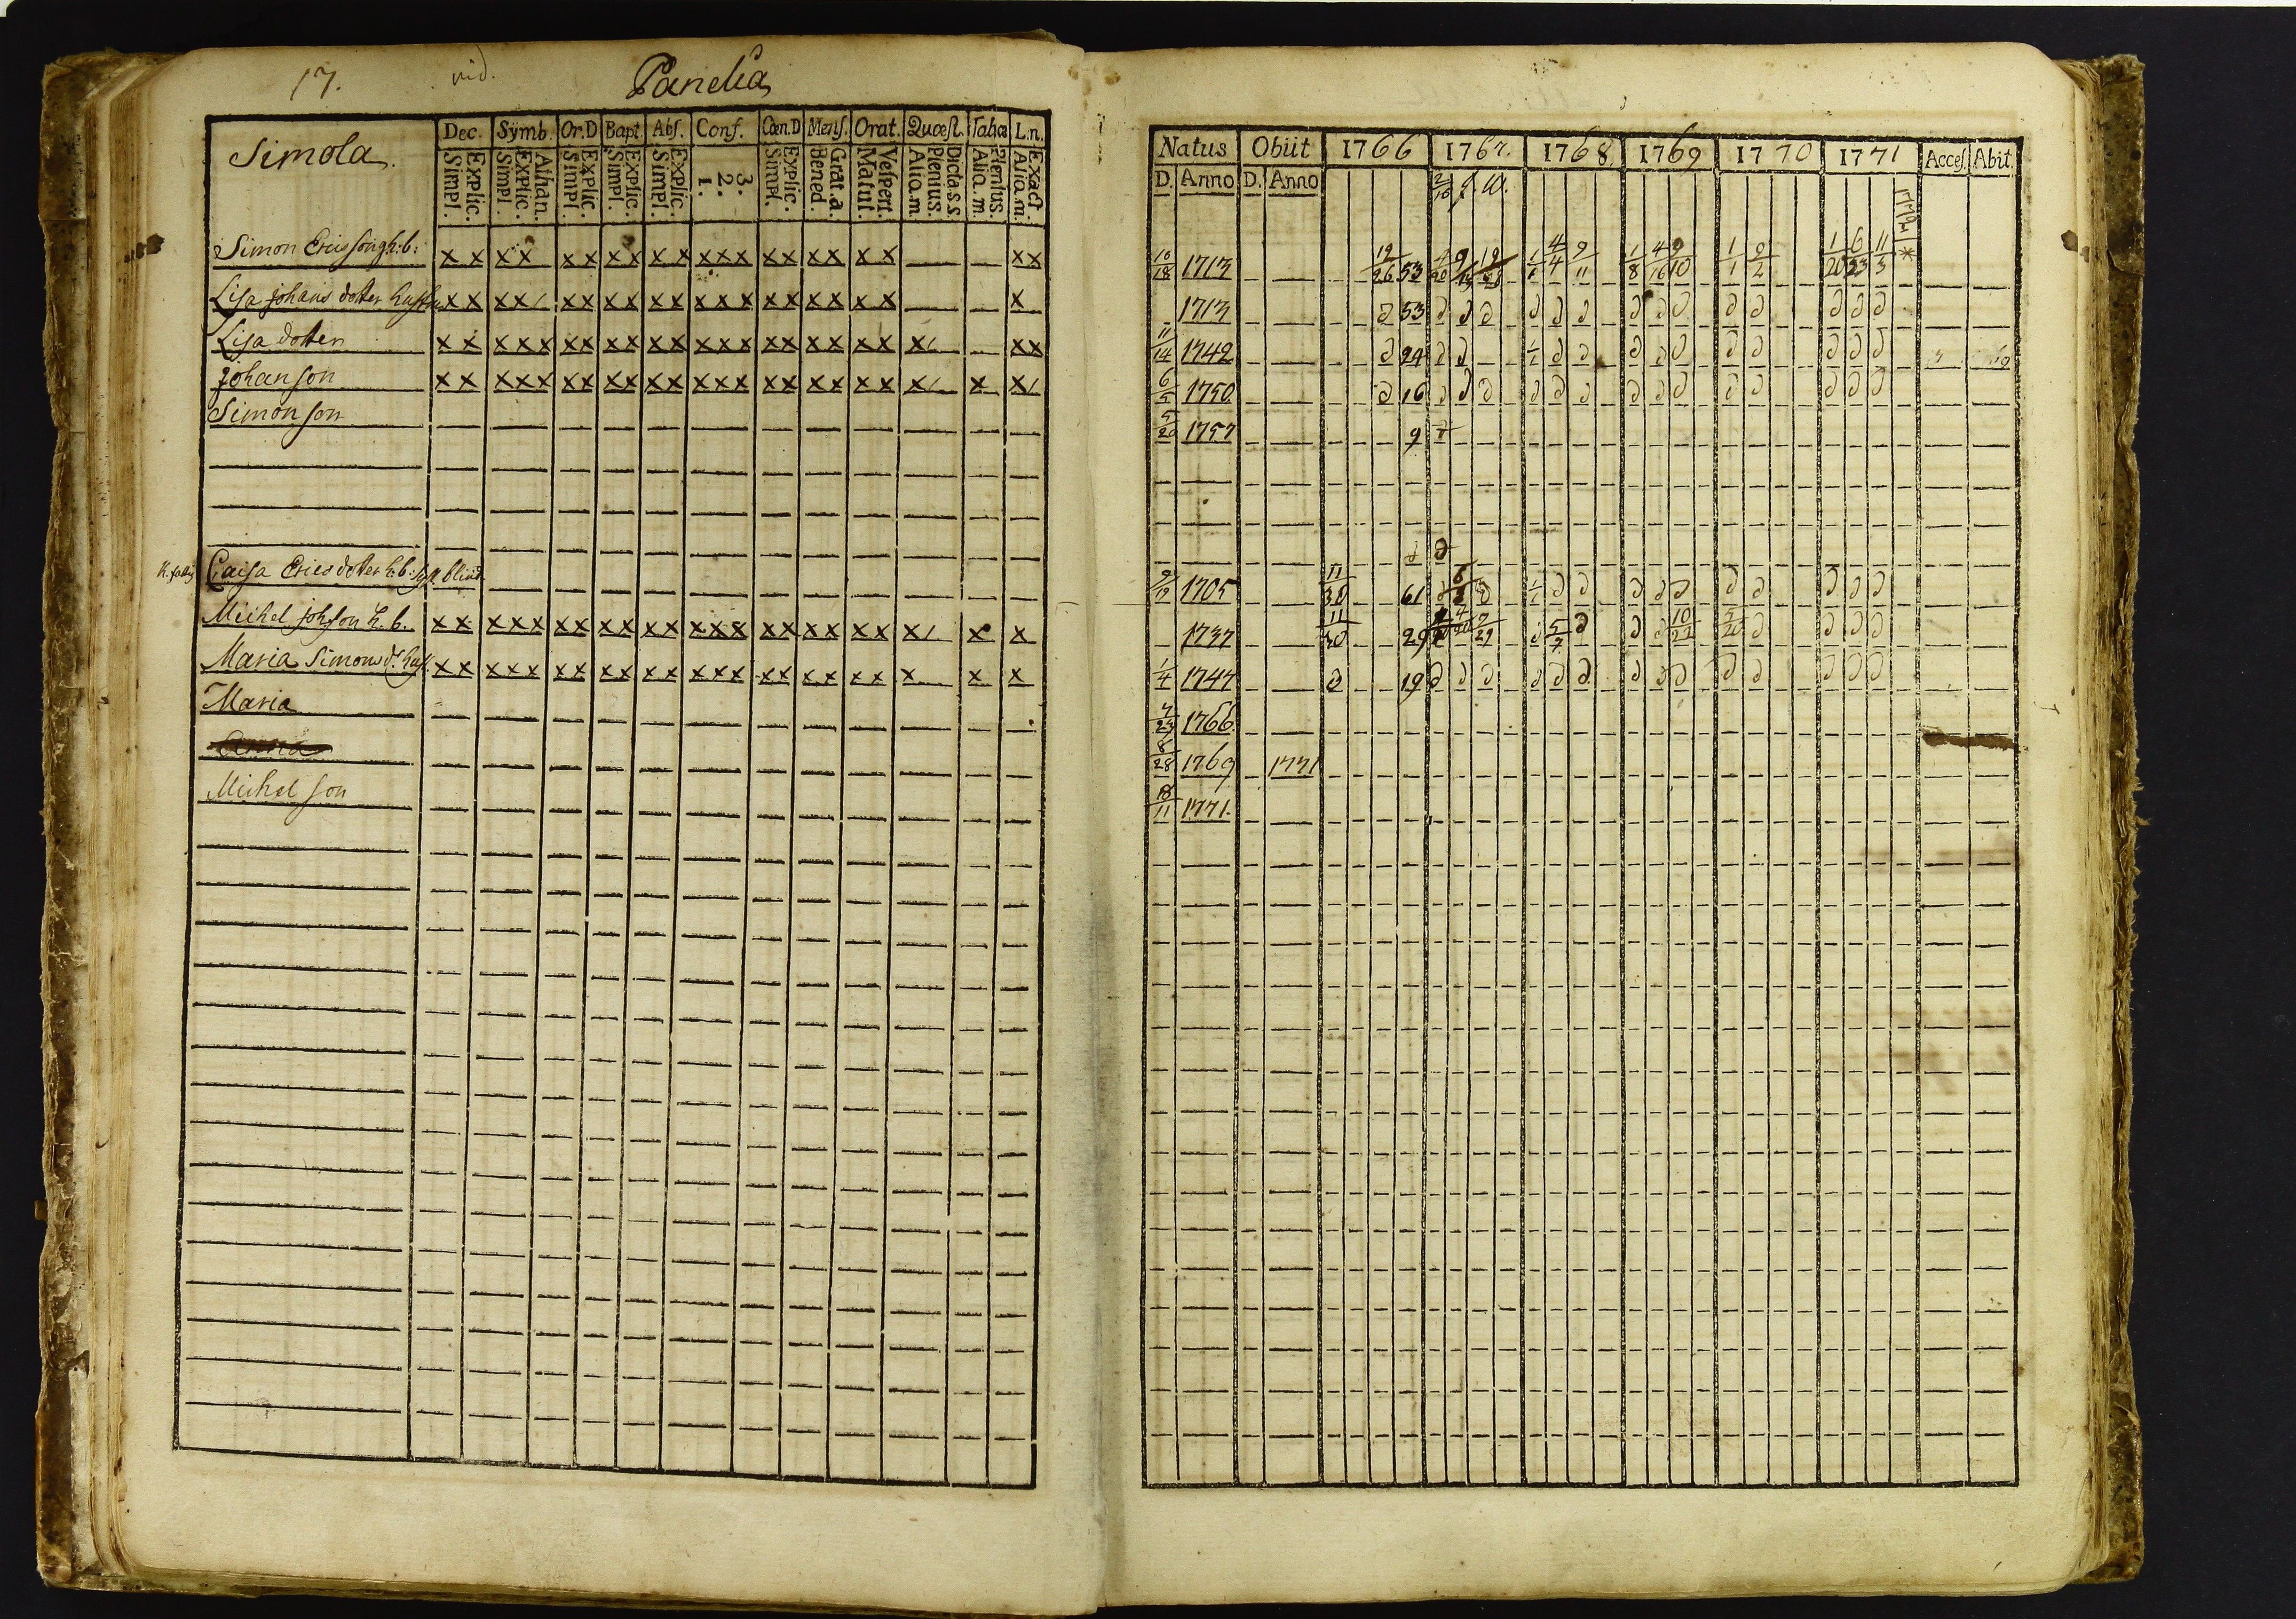 17. vid. Panelia
Simola. Dec. Sÿmb. Or.D Bapt. Abſ. Conf. Cœn.D Menſ. Orat. Quæſt. Tabœ L.n.
Explic. Simpl. Athan. Explic. Simpl. Explic. Simpl. Explic. Simpl. Explic. Simpl. 3. 2. 1. Explic. Simpl. Grat.a. Bened. Veſpert. Matut. Dicta s.s. Plenius. Alia.m. Plenius. Alia.m. Exact. Alia.m.
Simon Ericsson h:b: x x x x x x x x x x x x x x x x x x x x x
Lisa Johans dotter hustru x x x x / x x x x x x x x x x x x x x x x
Lisa dotter x x x x x x x x x x x x x x x x x x x x / x x
Johan son x x x x x x x x x x x x x x x x x x x x / x x /
Simon son
Caisa Ericsdotter h:b: blind
Michel Johsson h.b. x x x x x x x x x x x x x x x x x x x x / x x
Maria Simons dr. hust. x x x x x x x x x x x x x x x x x x x x x x
Maria
Anna
Michel son
Natus Obiit 1766 1767. 1768. 1769 1770 1771 Acceſ. Abit.
D. Anno D. Anno 1772
10/18 1713 12/26 53 1/1 4/4 9/11 1/8 4/16 9/10 1/1 9/2 1/20 6/23 11/3 *
1713 d 53 d d d d d d d d d d d d d d
11/14 1742 d 24 d d 1/1 d d d d d d d d d d
6/5 1750 d 16 d d d d d d d d d d d d d d
5/20 1757 9
1705 11/30 61 d 1/1 d d d d d d d d d d
1737 11/30 29 7/29 d 5/7 d d d 10/22 5/20 d d d d
1/4 1747 d 19 d d d d d d d d d d d d d d
1766.
8/28 1769 1771
10/11 1771.